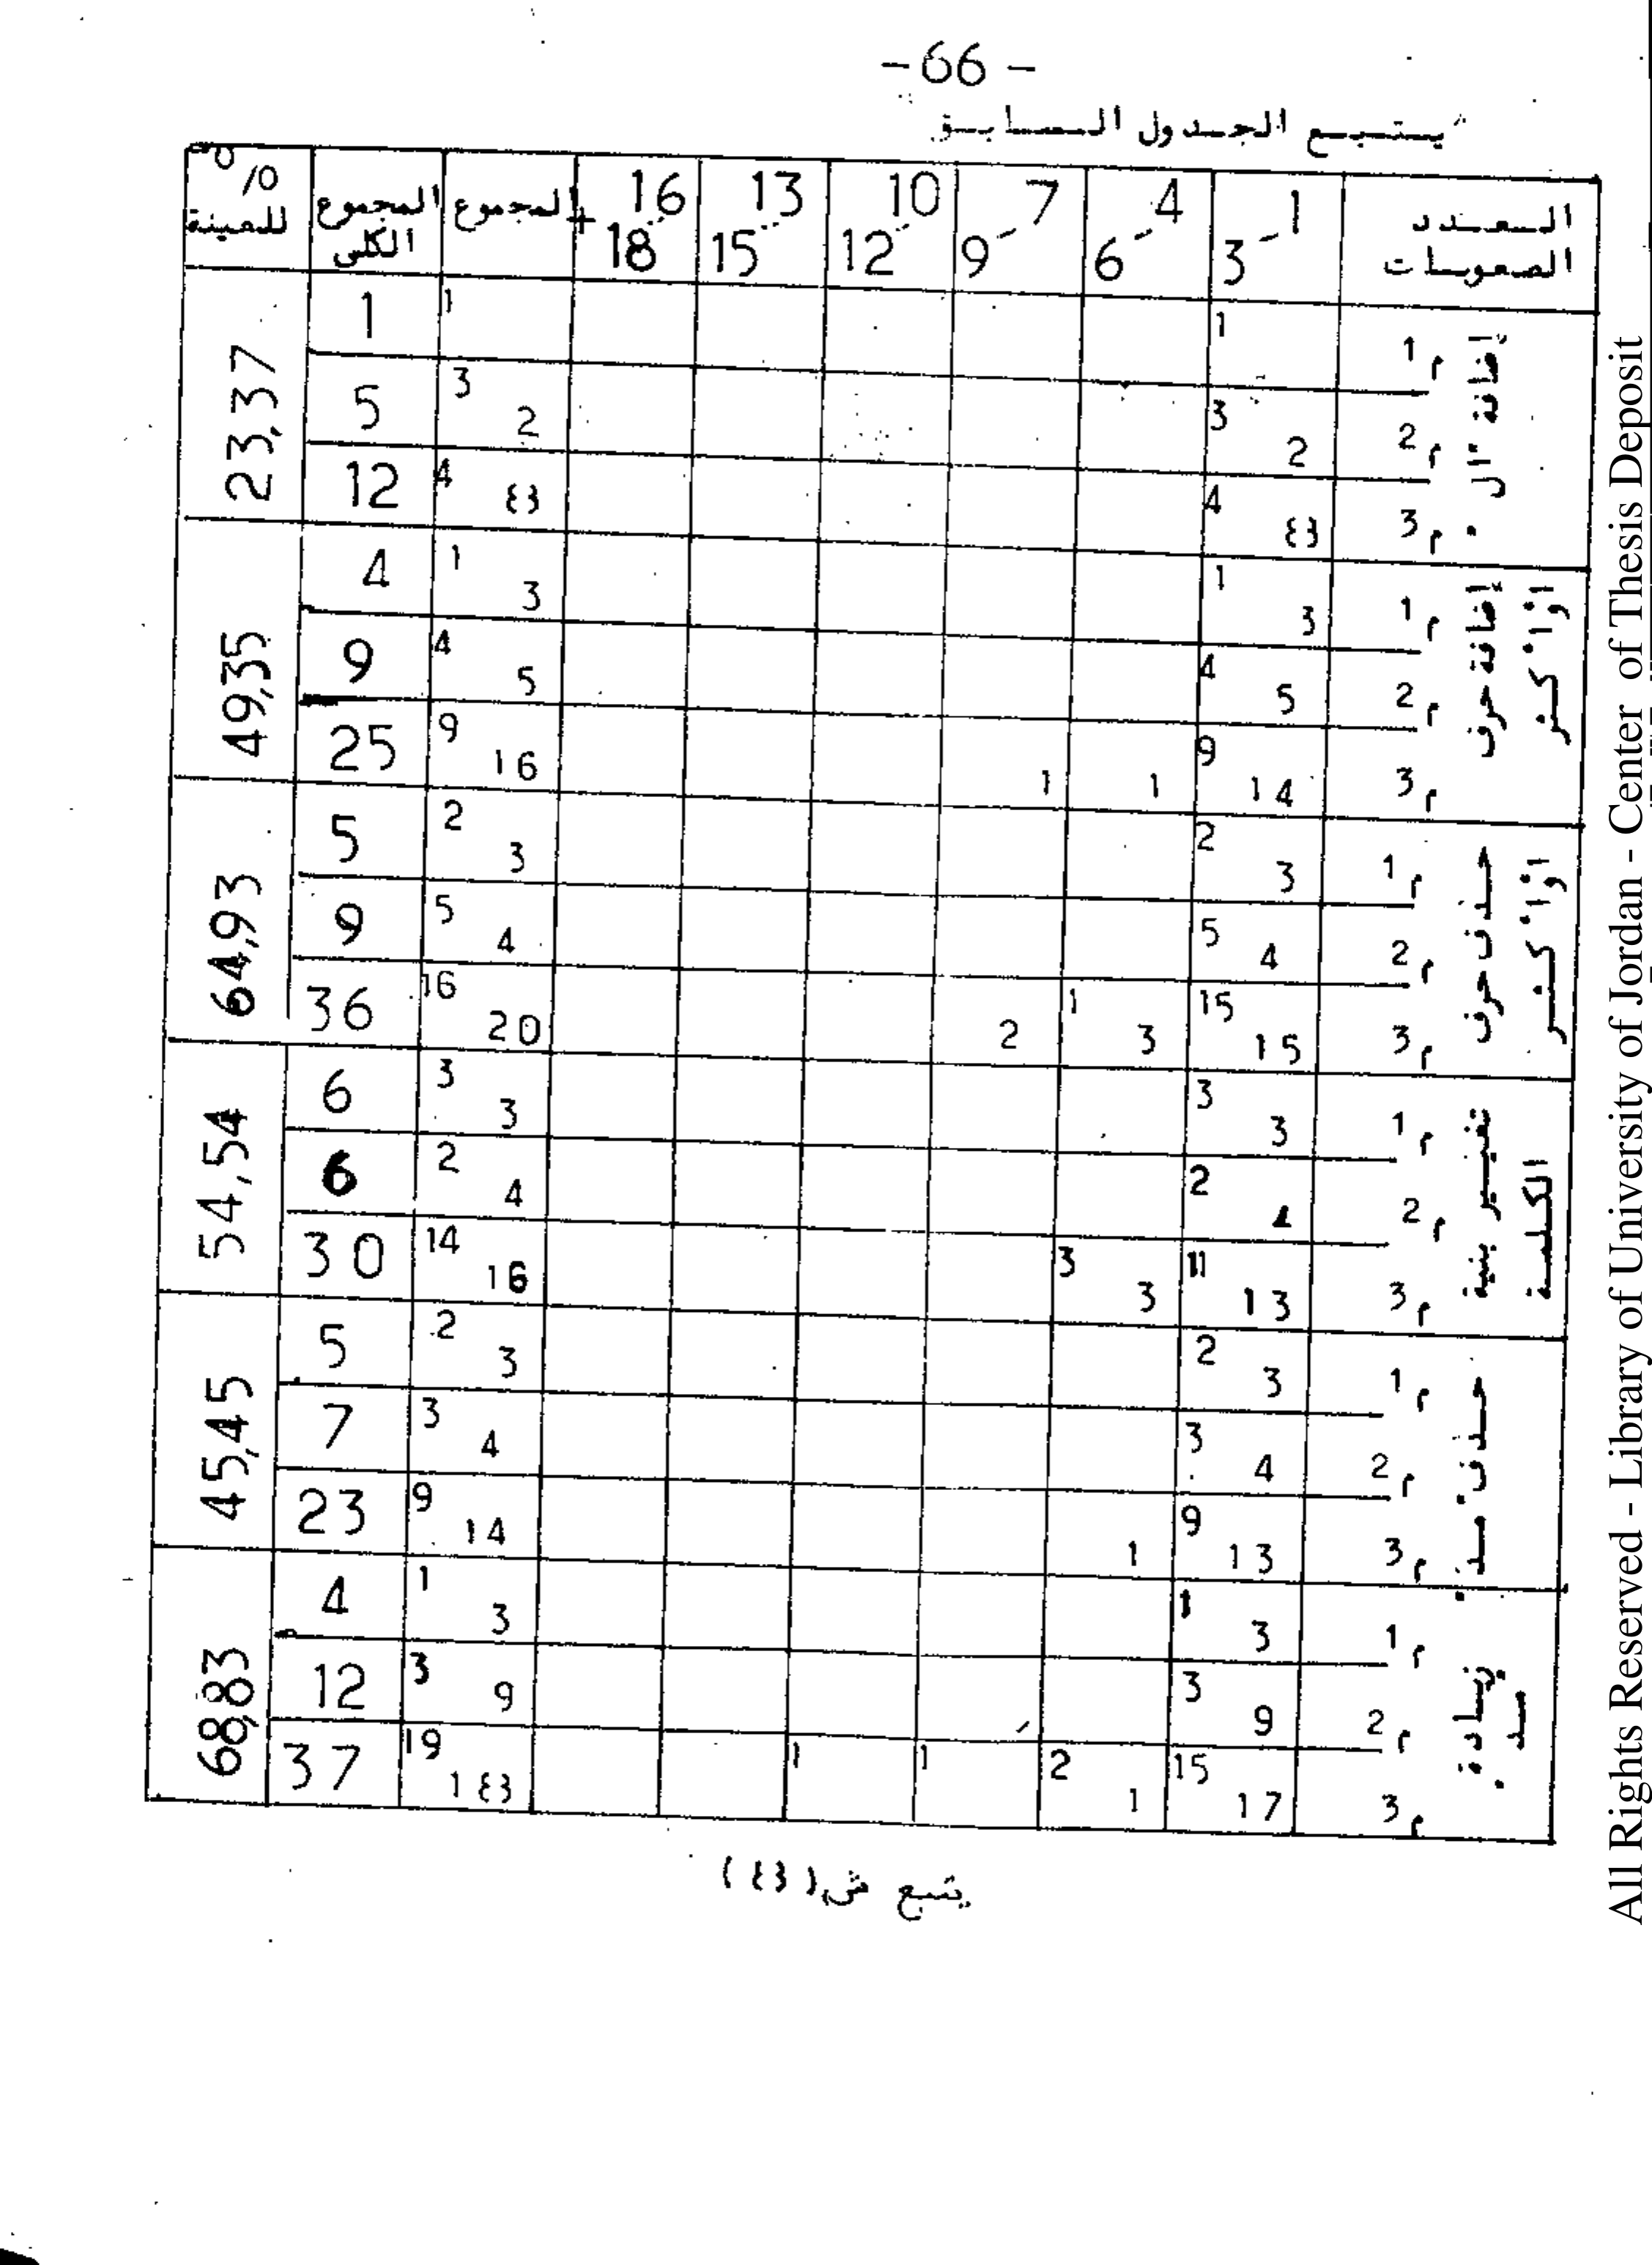 - 66 -
يتبع الجدول السابق
العدد الصعوبات 1-3 4-6 7-9 10-12 13-15 16-18+ المجموع المجموع الكلي % للعينة
إضافة "ال" 23,37
م1 1 1 1
م2 3 2 3 2 5
م3 4 8 4 8 12
إضافة حرف أو أكثر 49,35
م1 1 3 1 3 4
م2 4 5 4 5 9
م3 9 14 1 1 9 16 25
حذف حرف أو أكثر 64,93
م1 2 3 2 3 5
م2 5 4 5 4 9
م3 15 15 1 3 2 16 20 36
تغيير بنية الكلمة 54,54
م1 3 3 3 3 6
م2 2 2 4 6
م3 11 13 3 3 14 16 30
حذف مد 45,45
م1 2 3 2 3 5
م2 3 4 3 4 7
م3 9 13 1 9 14 23
زيادة مد 68,83
م1 1 3 1 3 4
م2 3 9 3 9 12
م3 15 17 2 1 1 1 19 18 37
All Rights Reserved - Library of University of Jordan - Center of Thesis Deposit